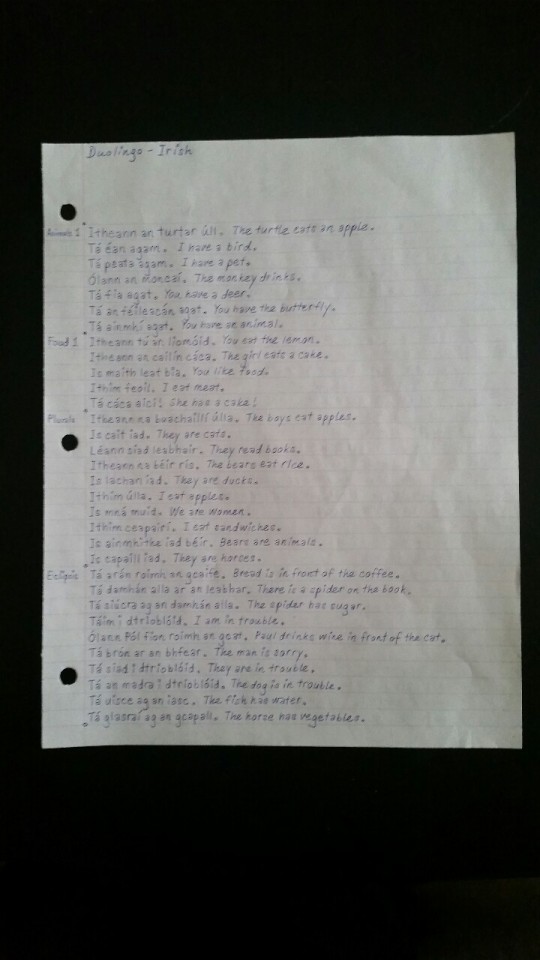 Duolingo - Irish
Animals 1 Itheann an turtar úll. The turtle eats an apple.
Tá éan agam. I have a bird.
Tá peata agam. I have a pet.
Ólann an moncaí. The monkey drinks.
Tá fia agat. You have a deer.
Tá an féileacán agat. You have the butterfly.
Tá ainmhí agat. You have an animal.
Food 1 Itheann tú an líomóid. You eat the lemon.
Itheann an cailín cáca. The girl eats a cake.
Is maith leat bia. You like food.
Ithim feoil. I eat meat.
Tá cáca aici! She has a cake!
Plurals Itheann na buachaillí úlla. The boys eat apples.
Is cait iad. They are cats.
Léann siad leabhair. They read books.
Itheann na béir rís. The bears eat rice.
Is lachan iad. They are ducks.
Ithim úlla. I eat apples.
Is mná muid. We are women.
Ithim ceapairí. I eat sandwiches.
Is ainmhithe iad béir. Bears are animals.
Is capaill iad. They are horses.
Eclipsis Tá arán roimh an gcaife. Bread is in front of the coffee.
Tá damhán alla ar an leabhar. There is a spider on the book.
Tá siúcra ag an damhán alla. The spider has sugar.
Táim i dtrioblóid. I am in trouble.
Ólann Pól fíon roimh an gcat. Paul drinks wine in front of the cat.
Tá brón ar an bhfear. The man is sorry.
Tá siad i dtrioblóid. They are in trouble.
Tá an madra i dtrioblóid. The dog is in trouble.
Tá uisce ag an iasc. The fish has water.
Tá glasraí ag an gcapall. The horse has vegetables.